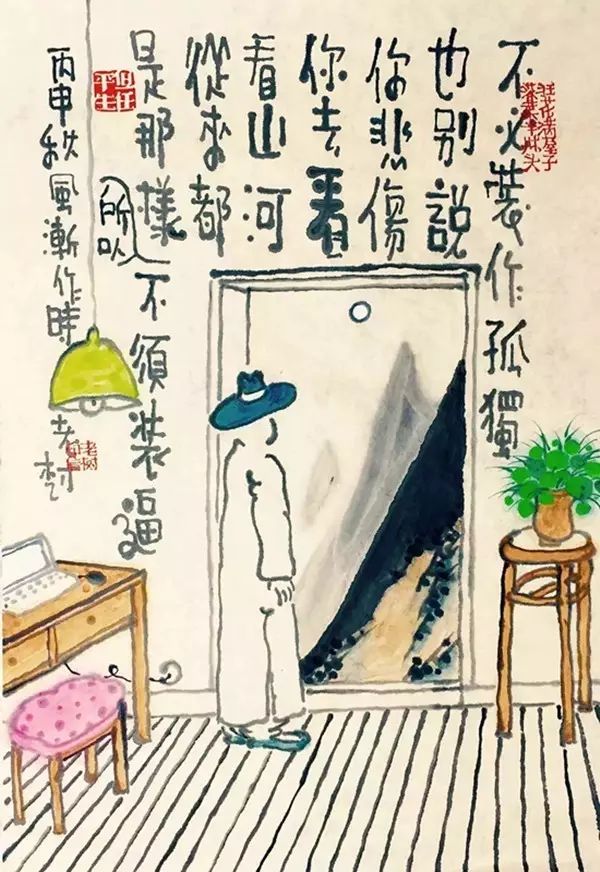 不必裝作孤獨
也別說
你悲傷
你去看
看山河
從來都
是那樣
所以
不須裝逼
丙申秋風漸作時 老樹
老树